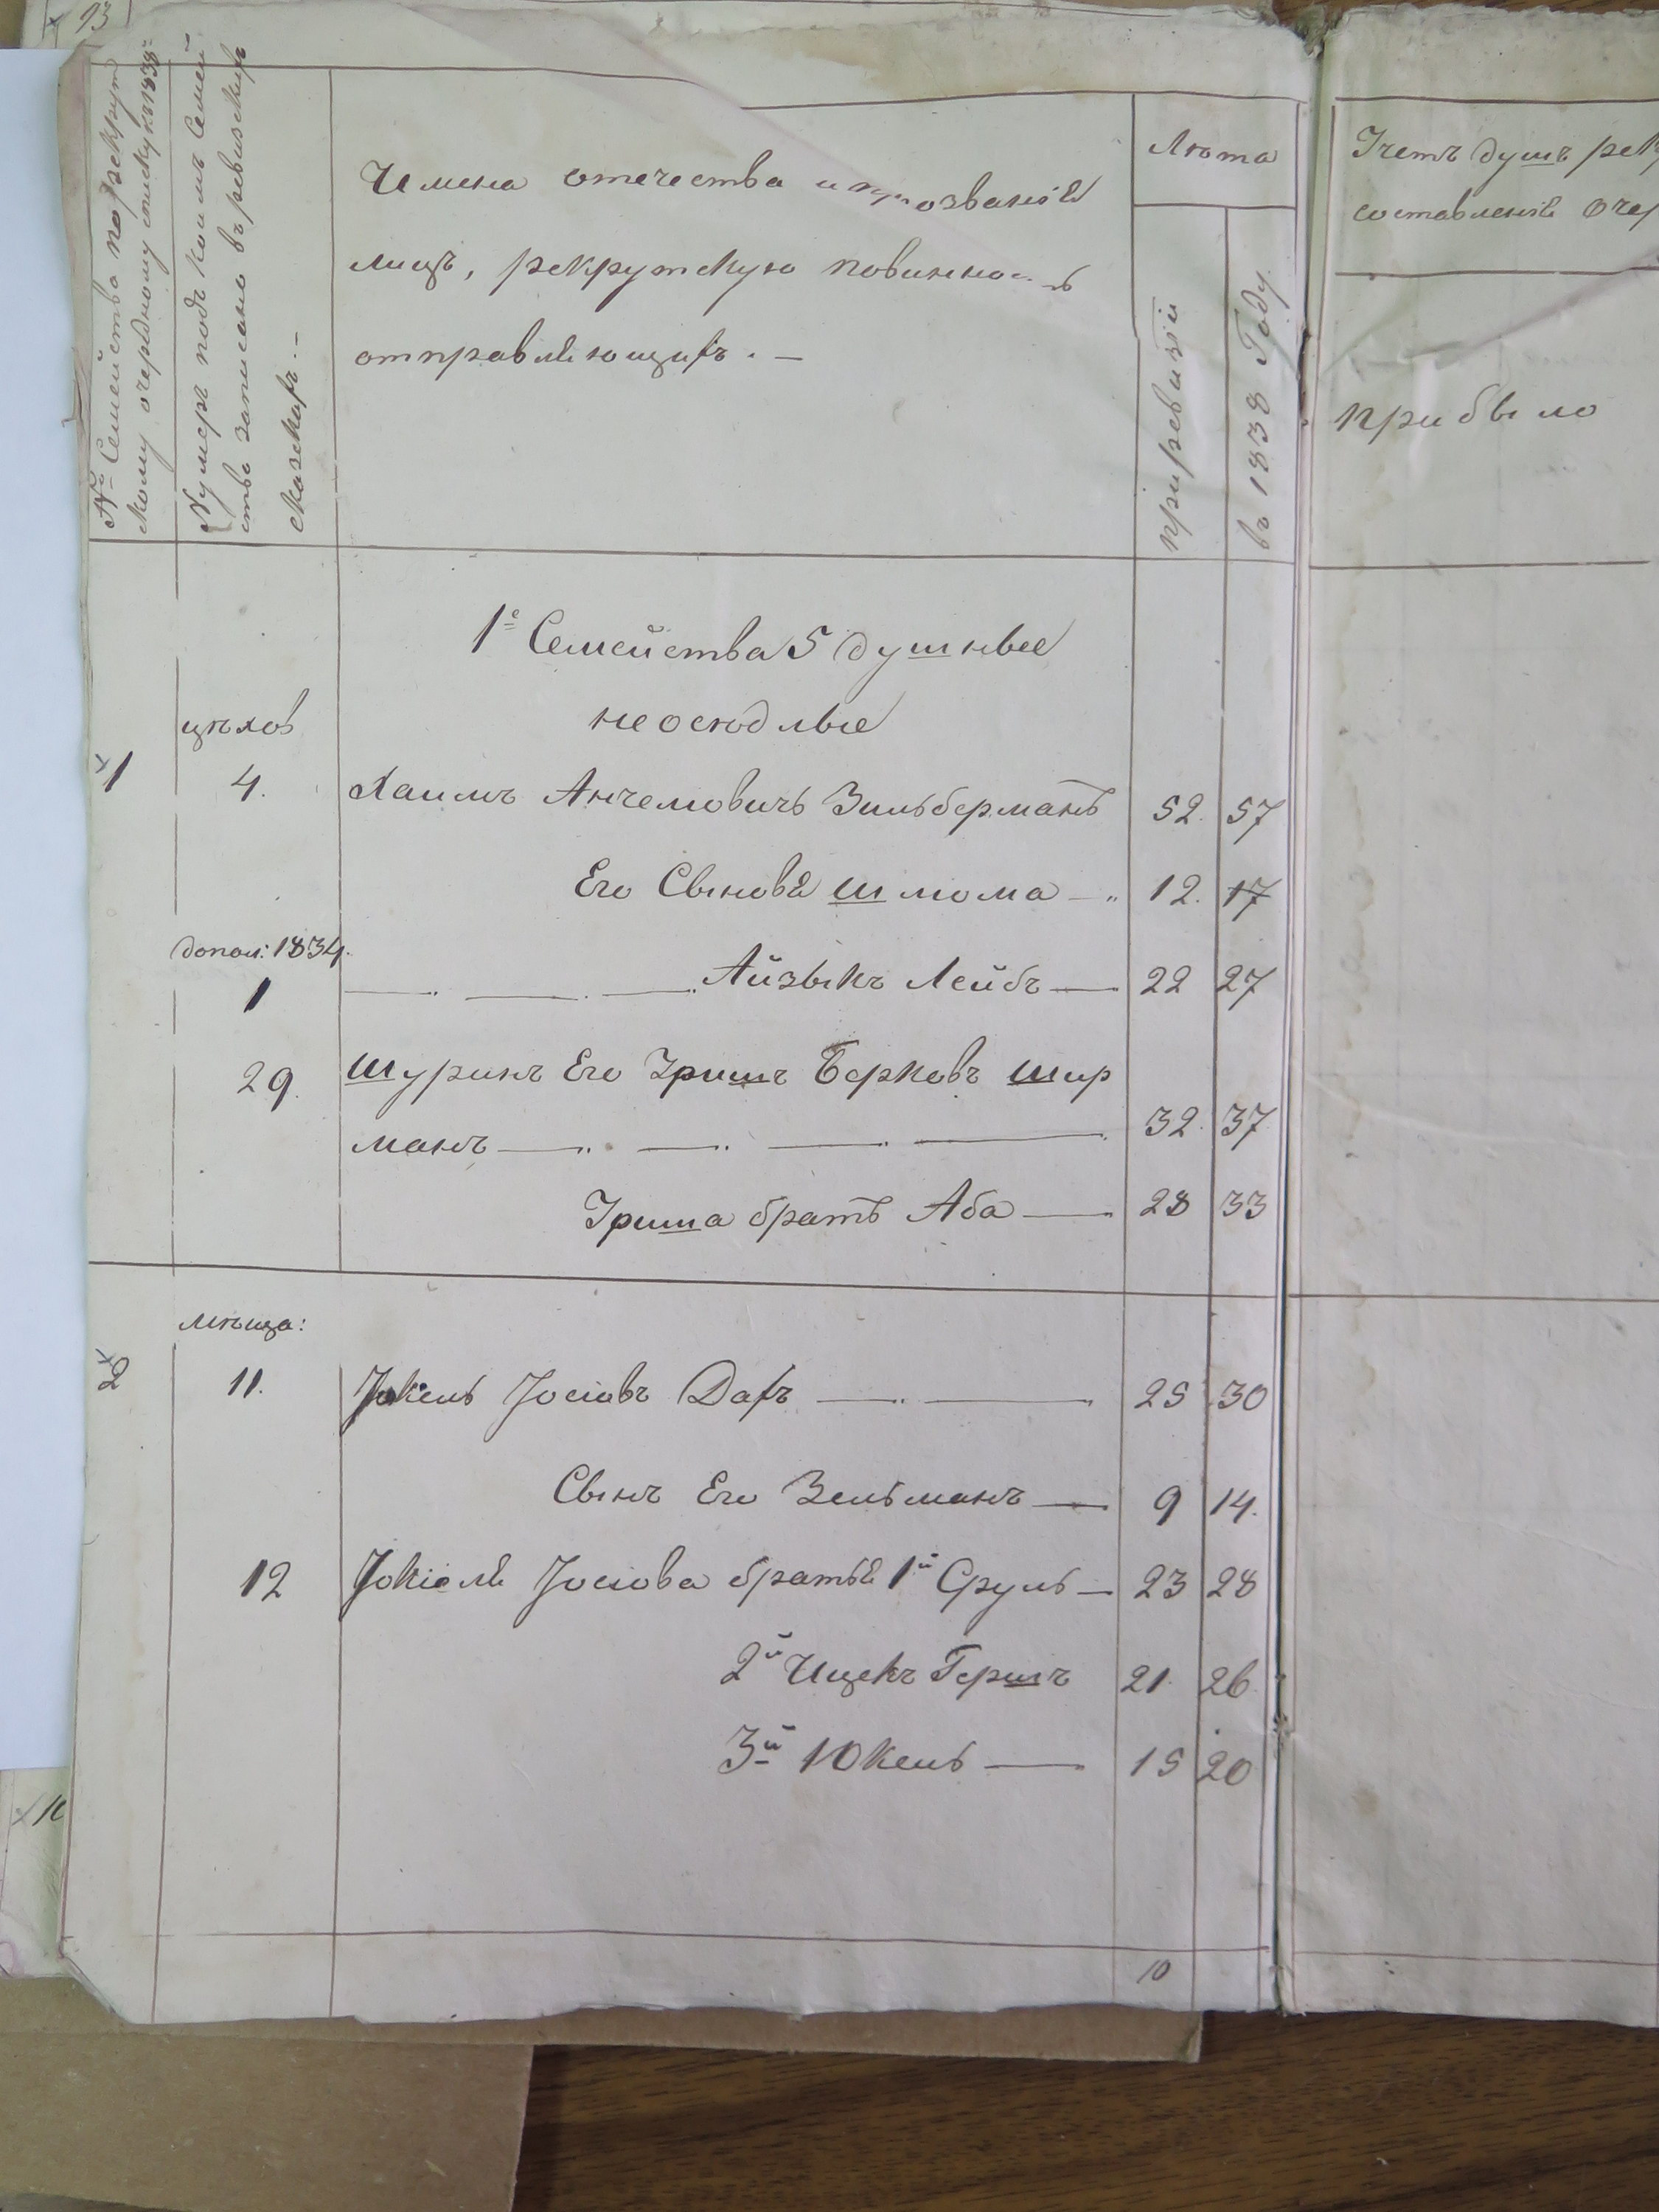 13
№ Семейства по рекрут
скому очередному списку на 1838 г.
Нумеръ подъ коимъ Семей
ство записано въ ревизскихъ
сказкахъ. —
Имена отечества и прозванія
лицъ, рекрутскую повинность
отправляющихъ. —
Лѣта
по ревизіи
въ 1838 Году
Учетъ душъ рек
составленія Очер
прибыло
1е Семейства 5 душные
цѣхов
неоседлые
1 4. Хаимъ Анчеловичъ Зильберманъ 52. 57
Его Сыновья Шлома — 12. 17
допол: 1834.
1 Айзыкъ Лейбъ — 22 27
29. Шуринъ Его Гришъ Берковъ Шир
манъ — 32. 37
Гриша братъ Аба — 28 33
мѣща:
2 11. Іокель Іосіовъ Дахъ — 25 30
Сынъ Его Зельманъ — 9 14.
12 Іокіеля Іосіова братья 1й Сруль — 23 28
2й Ицекъ Гершъ 21. 26.
3й Юкель — 15 20
10